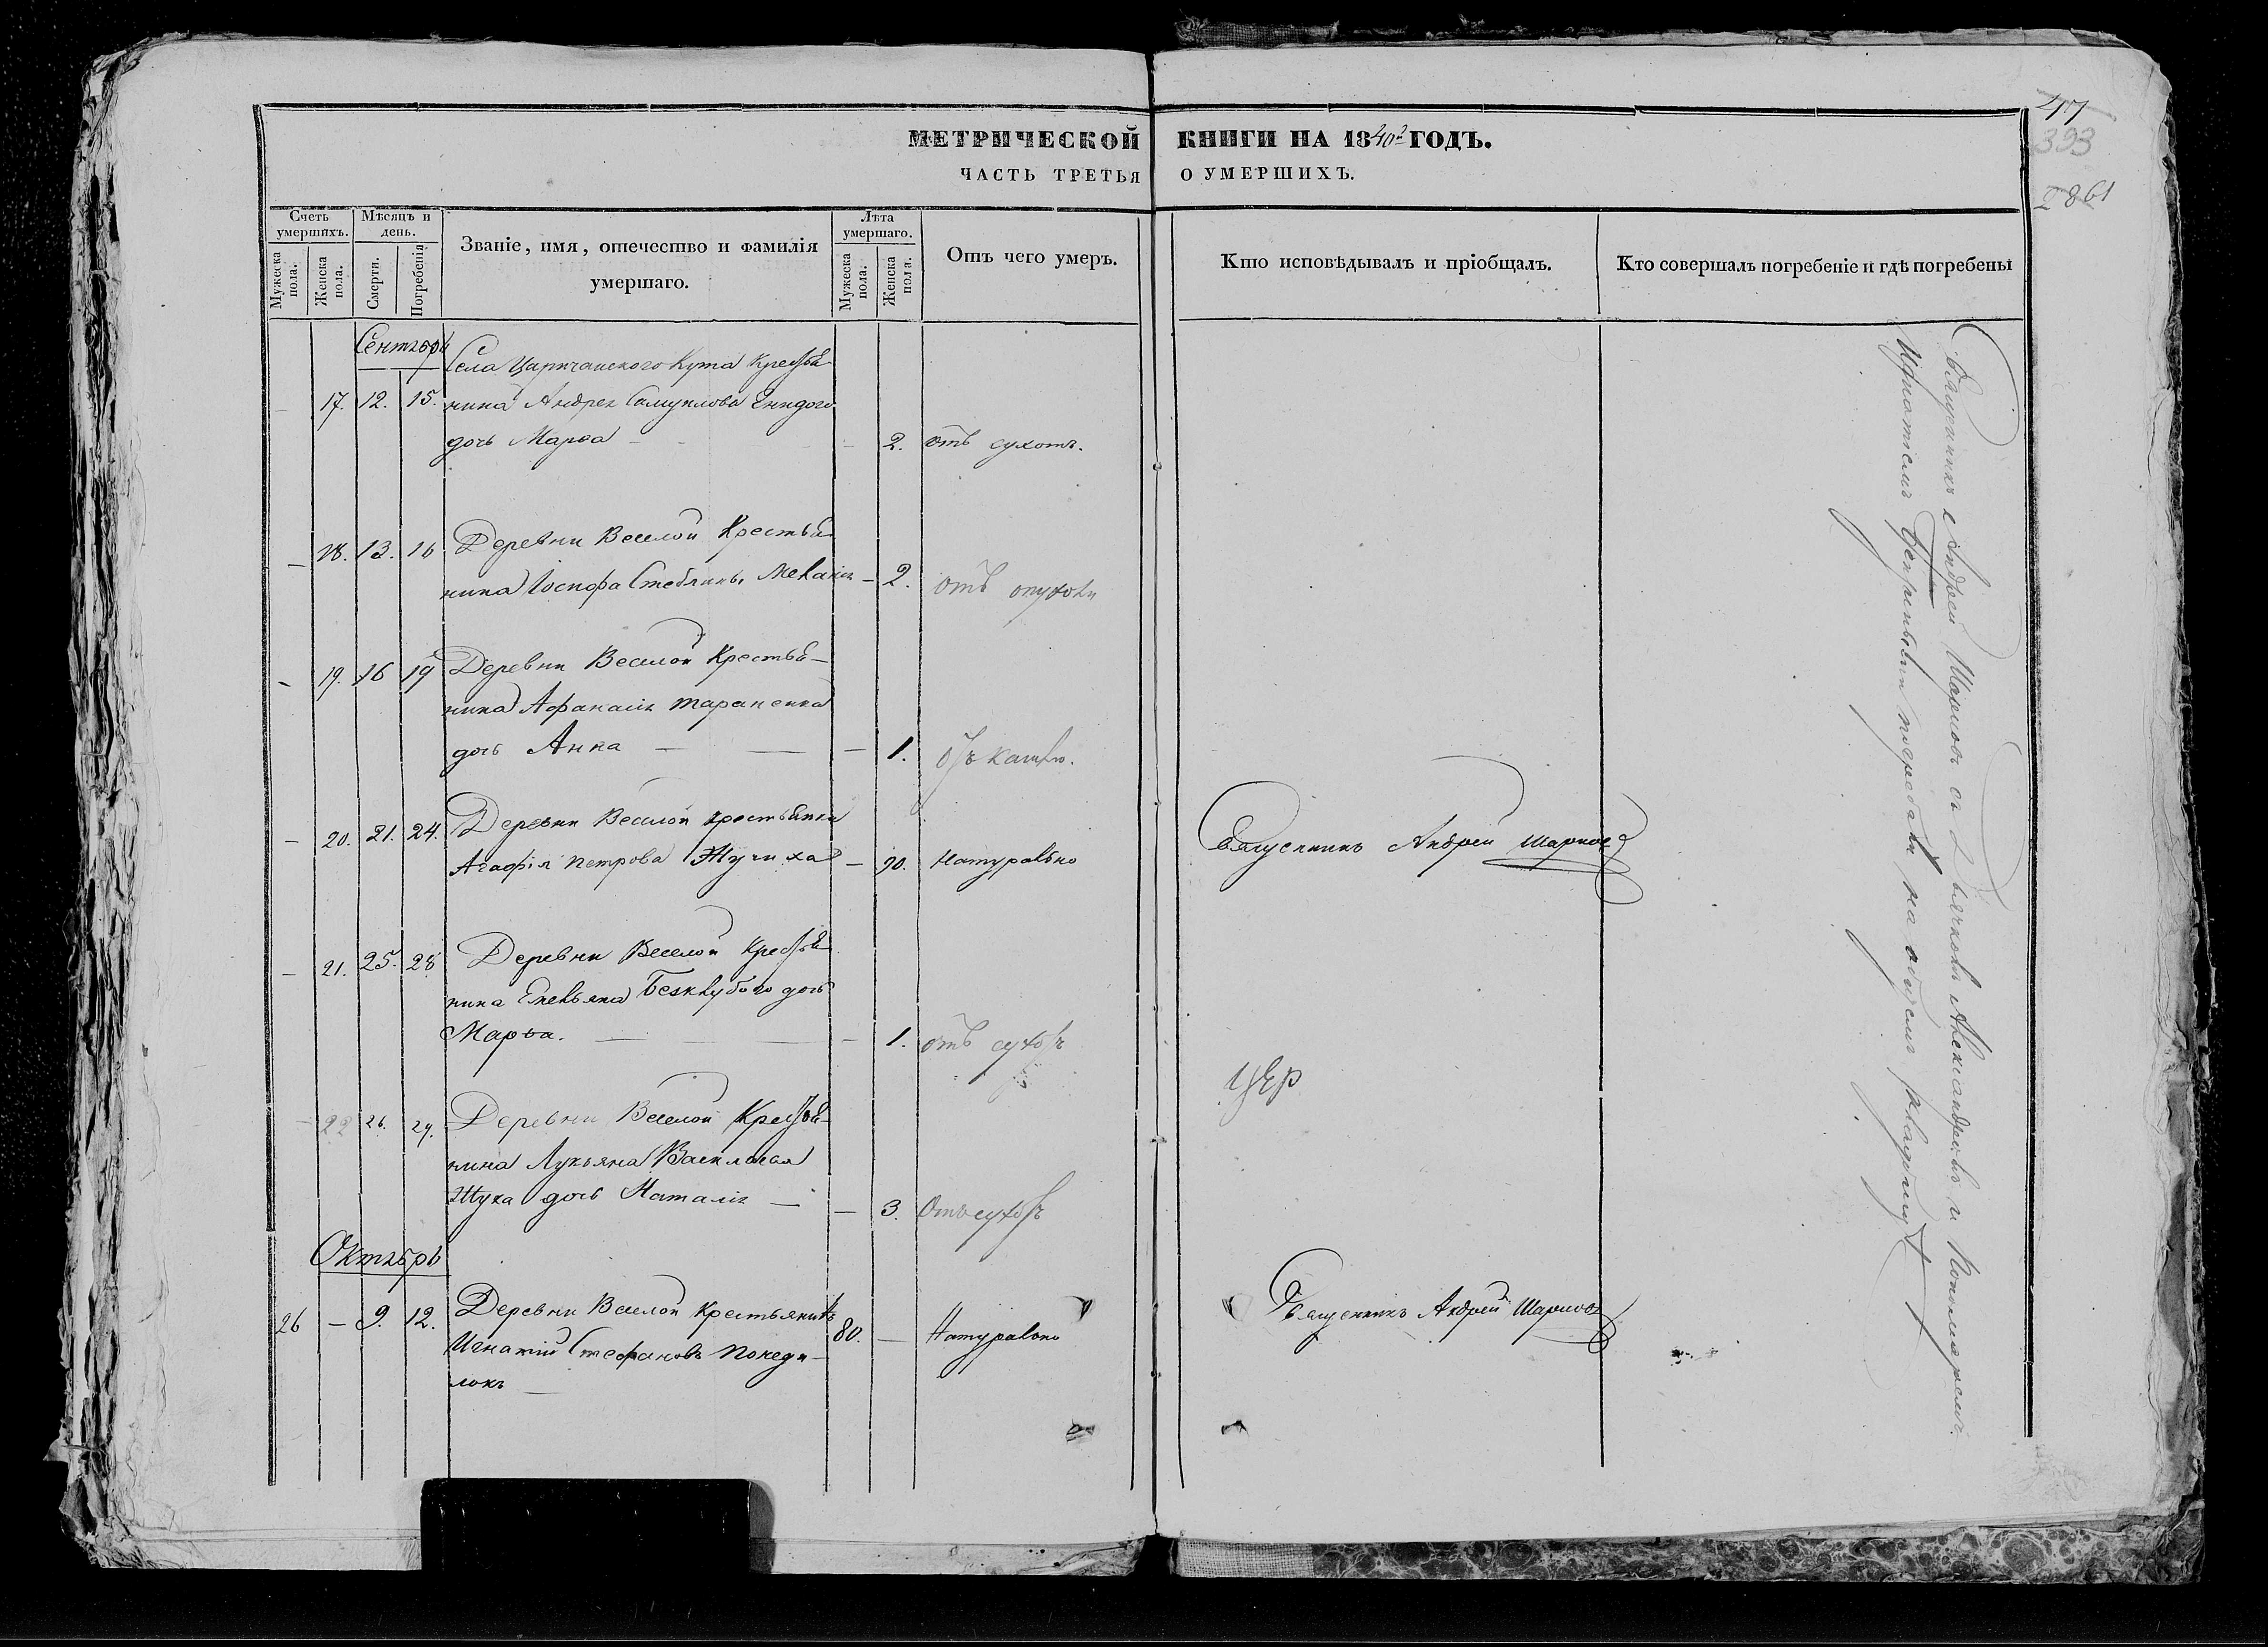 МЕТРИЧЕСКОЙ КНИГИ НА 1840й ГОДЪ.
ЧАСТЬ ТРЕТЬЯ О УМЕРШИХЪ.
47
393
2861
Счетъ умершихъ.
Мужеска пола.
Женска пола.
Мѣсяцъ и день.
Смерти.
Погребенія
Званіе, имя, отечество и фамилія умершаго.
Лѣта умершаго.
Мужеска пола.
Женска пола.
Отъ чего умеръ.
Кто исповѣдывалъ и пріобщалъ.
Кто совершалъ погребеніе и гдѣ погребены
Сентябрь
Села Царичанского Кута Крестья
17. 12. 15. нина Андрея Самуилова
дочь Марѳа — 2. отъ сухотъ.
— 18. 13. 16 Деревни Веселой Крестья
нина Іосифа Меланія — 2. отъ опухоли
— 19. 16 19 Деревни Веселой Крестья—
нина Афанасія Тараненка
дочь Анна — — — 1. отъ кашлю.
— 20. 21. 24. Деревни Веселой крестьянка
Агафія Петрова Жучиха — 90. Натурально
Священникъ Андрей Шарковъ
— 21. 25. 28 Деревни Веселой Крестья
нина Емельяна Безклубого дочь
Марѳа. — — — — 1. отъ сухотъ
— 22 26. 29. Деревни Веселой Крестья—
нина Лукьяна Васильева
Жука дочь Наталія — — 3. Отъ сухотъ
Октябрь
26 — 9. 12. Деревни Веселой Крестьянинъ
Игнатій Стефановъ Понеди—
локъ — 80. — Натурально
Священникъ Андрей Шарковъ
Священникъ Андрей Шарковъ съ Дьячкомъ Александровымъ и Пономаремъ
Игнатіемъ погребали на общемъ кладбищѣ